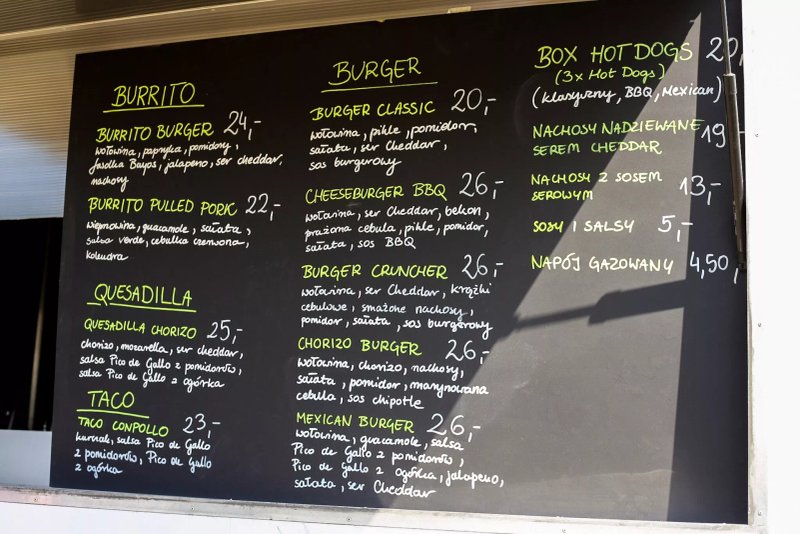 BURRITO
BURRITO BURGER 24,-
wołowina, papryka, pomidory,
fasolka Bayos, jalapeno, ser cheddar,
nachosy
BURRITO PULLED PORK 22,-
wieprzowina, guacamole, sałata,
salsa verde, cebulka czerwona,
kolendra
QUESADILLA
QUESADILLA CHORIZO 25,-
chorizo, mozarella, ser cheddar,
salsa Pico de Gallo z pomidorów,
salsa Pico de Gallo z ogórka
TACO
TACO CONPOLLO 23,-
kurczak, salsa Pico de Gallo
z pomidorów, Pico de Gallo
z ogórka
BURGER
BURGER CLASSIC 20,-
wołowina, pikle, pomidor,
sałata, ser Cheddar,
sos burgerowy
CHEESEBURGER BBQ 26,-
wołowina, ser Cheddar, bekon,
prażona cebula, pikle, pomidor,
sałata, sos BBQ
BURGER CRUNCHER 26,-
wołowina, ser Cheddar, krążki
cebulowe, smażone nachosy,
pomidor, sałata, sos burgerowy
CHORIZO BURGER 26,-
wołowina, chorizo, nachosy,
sałata, pomidor, marynowana
cebulla, sos chipotle
MEXICAN BURGER 26,-
wołowina, guacamole, salsa
Pico de Gallo z pomidorów,
Pico de Gallo z ogórka, jalapeno,
sałata, ser Cheddar
BOX HOT DOGS 20,
(3x Hot Dogs)
(klasyczny, BBQ, Mexican)
NACHOSY NADZIEWANE 19
SEREM CHEDDAR
NACHOSY Z SOSEM 13,-
SEROWYM
SOSY I SALSY 5,-
NAPÓJ GAZOWANY 4,50,